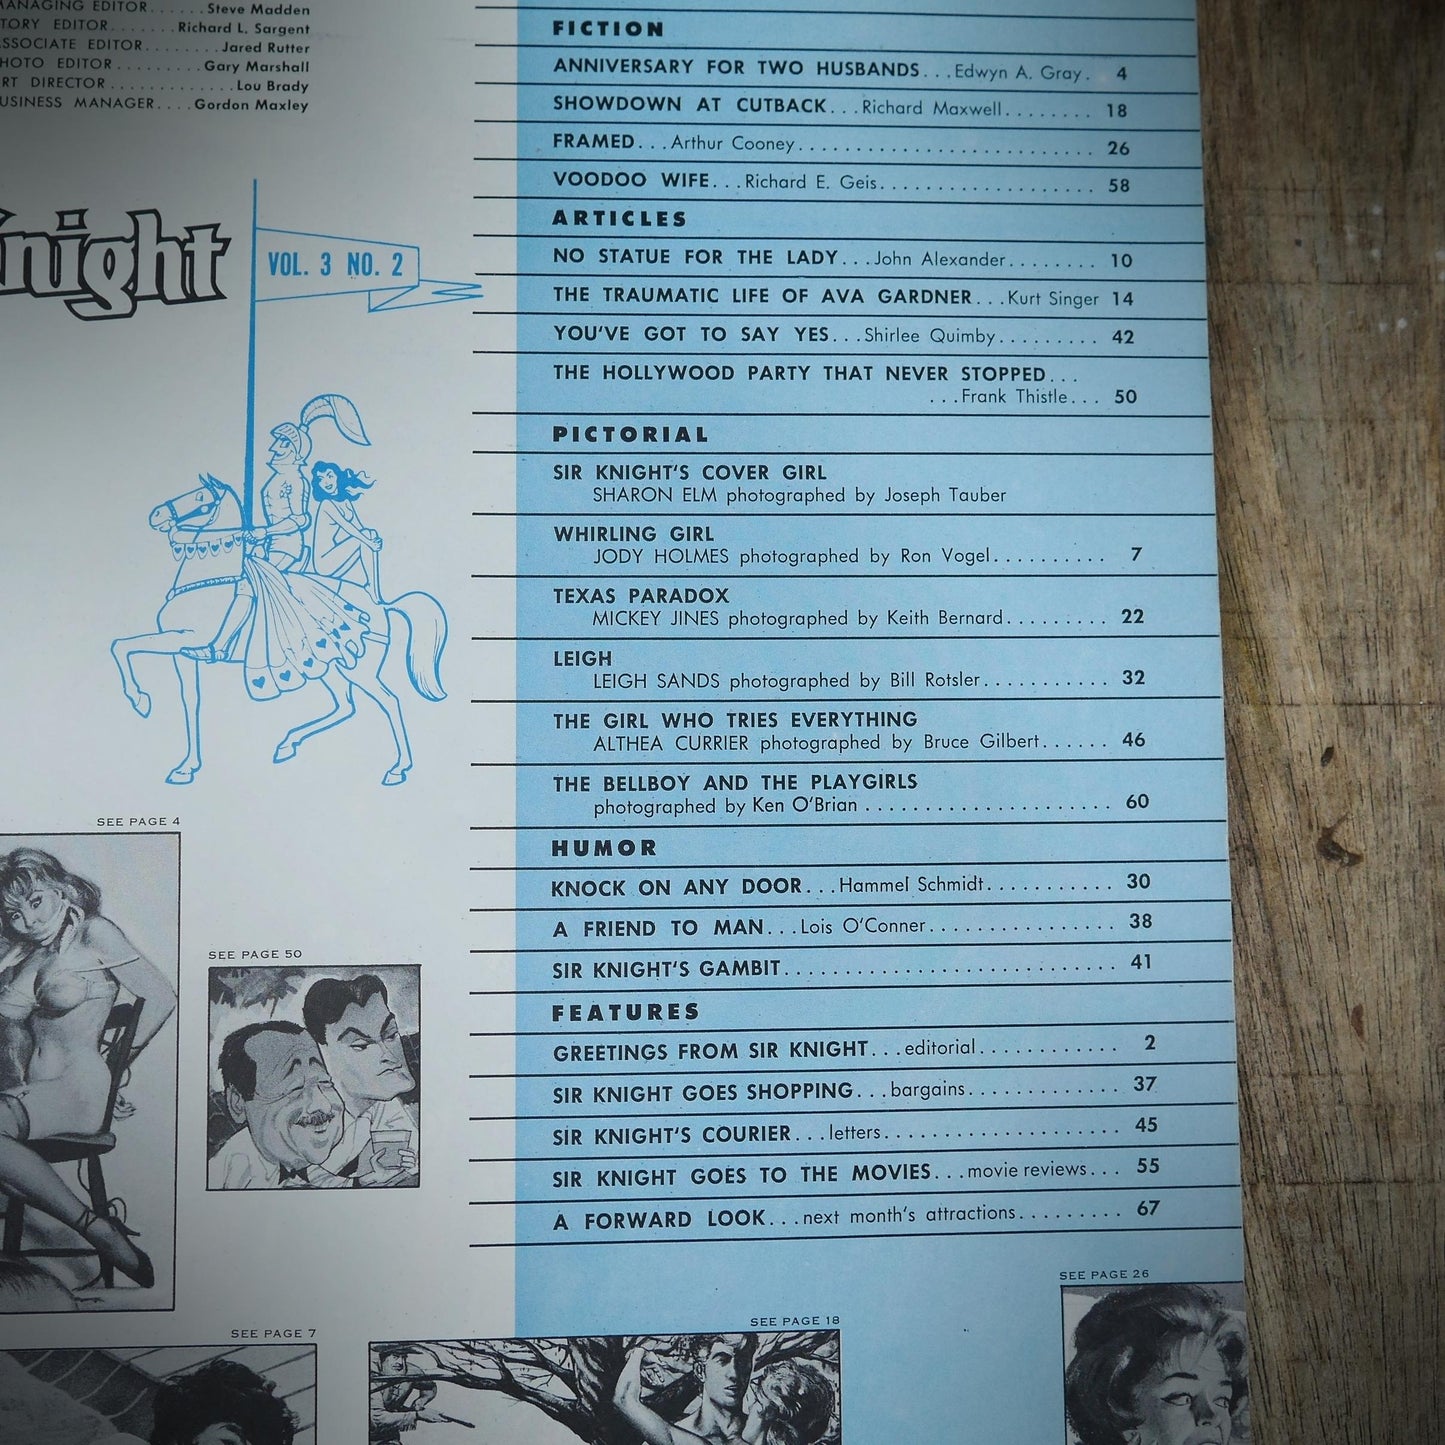 MANAGING EDITOR......Steve Madden
STORY EDITOR.......Richard L. Sargent
ASSOCIATE EDITOR........Jared Rutter
PHOTO EDITOR.........Gary Marshall
ART DIRECTOR.............Lou Brady
BUSINESS MANAGER....Gordon Maxley
Knight
VOL. 3 NO. 2
SEE PAGE 4
SEE PAGE 50
SEE PAGE 7
FICTION
ANNIVERSARY FOR TWO HUSBANDS...Edwyn A. Gray. 4
SHOWDOWN AT CUTBACK...Richard Maxwell........ 18
FRAMED...Arthur Cooney.......................... 26
VOODOO WIFE...Richard E. Geis................... 58
ARTICLES
NO STATUE FOR THE LADY...John Alexander........ 10
THE TRAUMATIC LIFE OF AVA GARDNER...Kurt Singer 14
YOU'VE GOT TO SAY YES...Shirlee Quimby......... 42
THE HOLLYWOOD PARTY THAT NEVER STOPPED...
...Frank Thistle... 50
PICTORIAL
SIR KNIGHT'S COVER GIRL
SHARON ELM photographed by Joseph Tauber
WHIRLING GIRL
JODY HOLMES photographed by Ron Vogel.......... 7
TEXAS PARADOX
MICKEY JINES photographed by Keith Bernard......... 22
LEIGH
LEIGH SANDS photographed by Bill Rotsler........... 32
THE GIRL WHO TRIES EVERYTHING
ALTHEA CURRIER photographed by Bruce Gilbert...... 46
THE BELLBOY AND THE PLAYGIRLS
photographed by Ken O'Brian ...................... 60
HUMOR
KNOCK ON ANY DOOR...Hammel Schmidt........... 30
A FRIEND TO MAN...Lois O'Conner................ 38
SIR KNIGHT'S GAMBIT............................. 41
FEATURES
GREETINGS FROM SIR KNIGHT...editorial............ 2
SIR KNIGHT GOES SHOPPING...bargains............. 37
SIR KNIGHT'S COURIER...letters..................... 45
SIR KNIGHT GOES TO THE MOVIES...movie reviews... 55
A FORWARD LOOK...next month's attractions......... 67
SEE PAGE 26
SEE PAGE 18